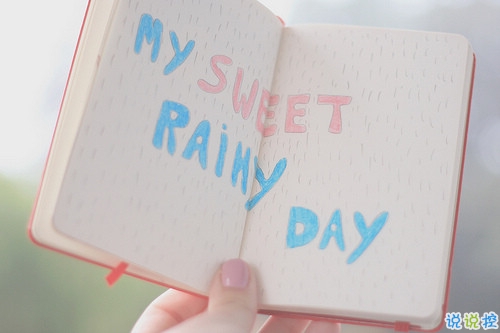 My
SWEET
RAiNy
DAy
说说控